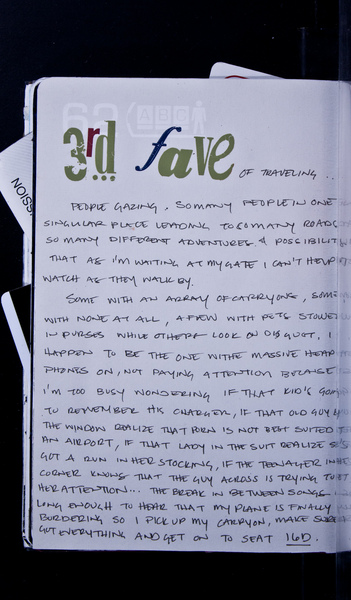 62 ABC
3rd fave OF TRAVELING...
PEOPLE GAZING, SO MANY PEOPLE IN ONE
SINGULAR PLACE LEADING TO SO MANY ROADS
SO MANY DIFFERENT ADVENTURES & POSSIBILIT
THAT AS I'M WAITING AT MY GATE I CAN'T HELP
WATCH AS THEY WALK BY.
SOME WITH AN ARRAY OF CARRYONS, SOME
WITH NONE AT ALL, A FEW WITH PETS STOWE
IN PURSES WHILE OTHERS LOOK ON DISGUST. I
HAPPEN TO BE THE ONE WITH MASSIVE HEAD
PHONES ON, NOT PAYING ATTENTION BECAUSE
I'M TOO BUSY WONDERING IF THAT KID'S GO
TO REMEMBER HIS CHARGER, IF THAT OLD GUY BY
THE WINDOW REALIZE THAT PORN IS NOT BEST SUITED
AN AIRPORT, IF THAT LADY IN THE SUIT REALIZE
GOT A RUN IN HER STOCKING, IF THE TEENAGER IN THE
CORNER KNOWS THAT THE GUY ACROSS IS TRYING TO
HER ATTENTION... THE BREAK IN BETWEEN SONGS
LONG ENOUGH TO HEAR THAT MY PLANE IS FINALLY
BORDERING SO I PICK UP MY CARRYON, MAKE SURE
GOT EVERYTHING AND GET ON TO SEAT 16D.
NOISS